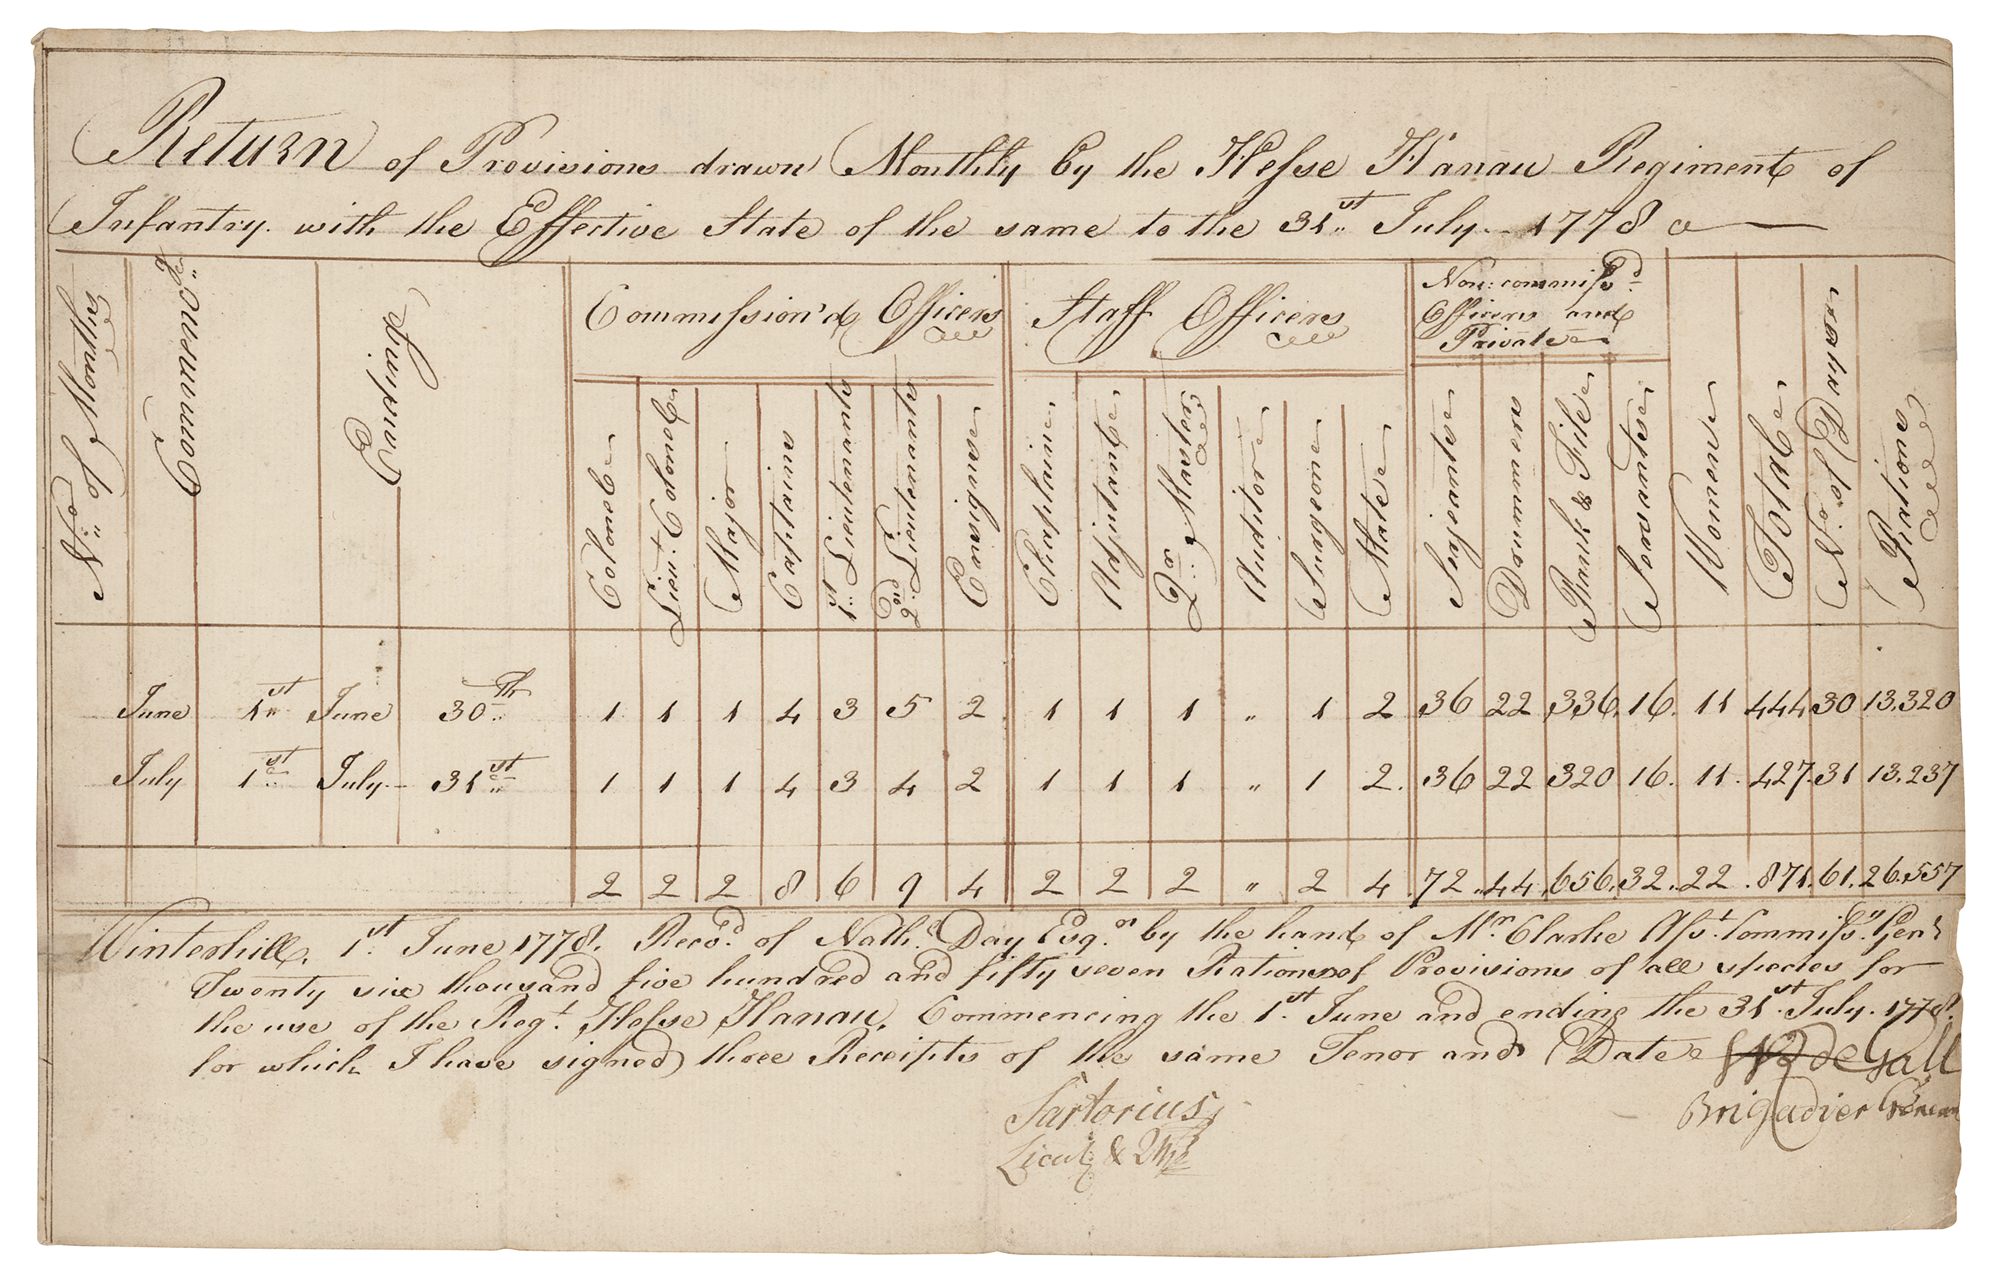 Return of Provisions drawn Monthly by the Hesse Hanau Regiment of
Infantry. with the Effective State of the same to the 31st July. 1778
No. of Months
Commenceg.
Ending
Commission'd Officers
Staff Officers
Non: commiss'd.
Officers and
Private
Colonel
Lieut. Colonel
Major
Captains
1st. Lieutenants
2nd. Lieutenants
Ensigns
Chaplain
Adjutant
Qr. Master
Auditor
Surgeon
Mate
Serjeants
Drumrs
Rank & File
Servants
Women
Total
No. of Days
Rations
June 1st June 30th 1 1 1 4 3 5 2 1 1 1 " 1 2 36 22 336 16 11 444 30 13,320
July 1st July 31st 1 1 1 4 3 4 2 1 1 1 " 1 2 36 22 320 16 11 427 31 13,237
2 2 2 8 6 9 4 2 2 2 " 2 4 72 44 656 32 22 871 61 26,557
Winterhill, 1st. June 1778. Recd. of Nathl. Day Esqr. by the hand of Mr. Clarke Asst. Commissy. Genl
Twenty six thousand five hundred and fifty seven Rations of Provisions of all species for
the use of the Regt. Hesse Hanau, Commencing the 1st. June and ending the 31st. July. 1778.
for which I have signed three Receipts of the same Tenor and Date de Gall
Sartorius, Brigadier General
Lieut & QMr